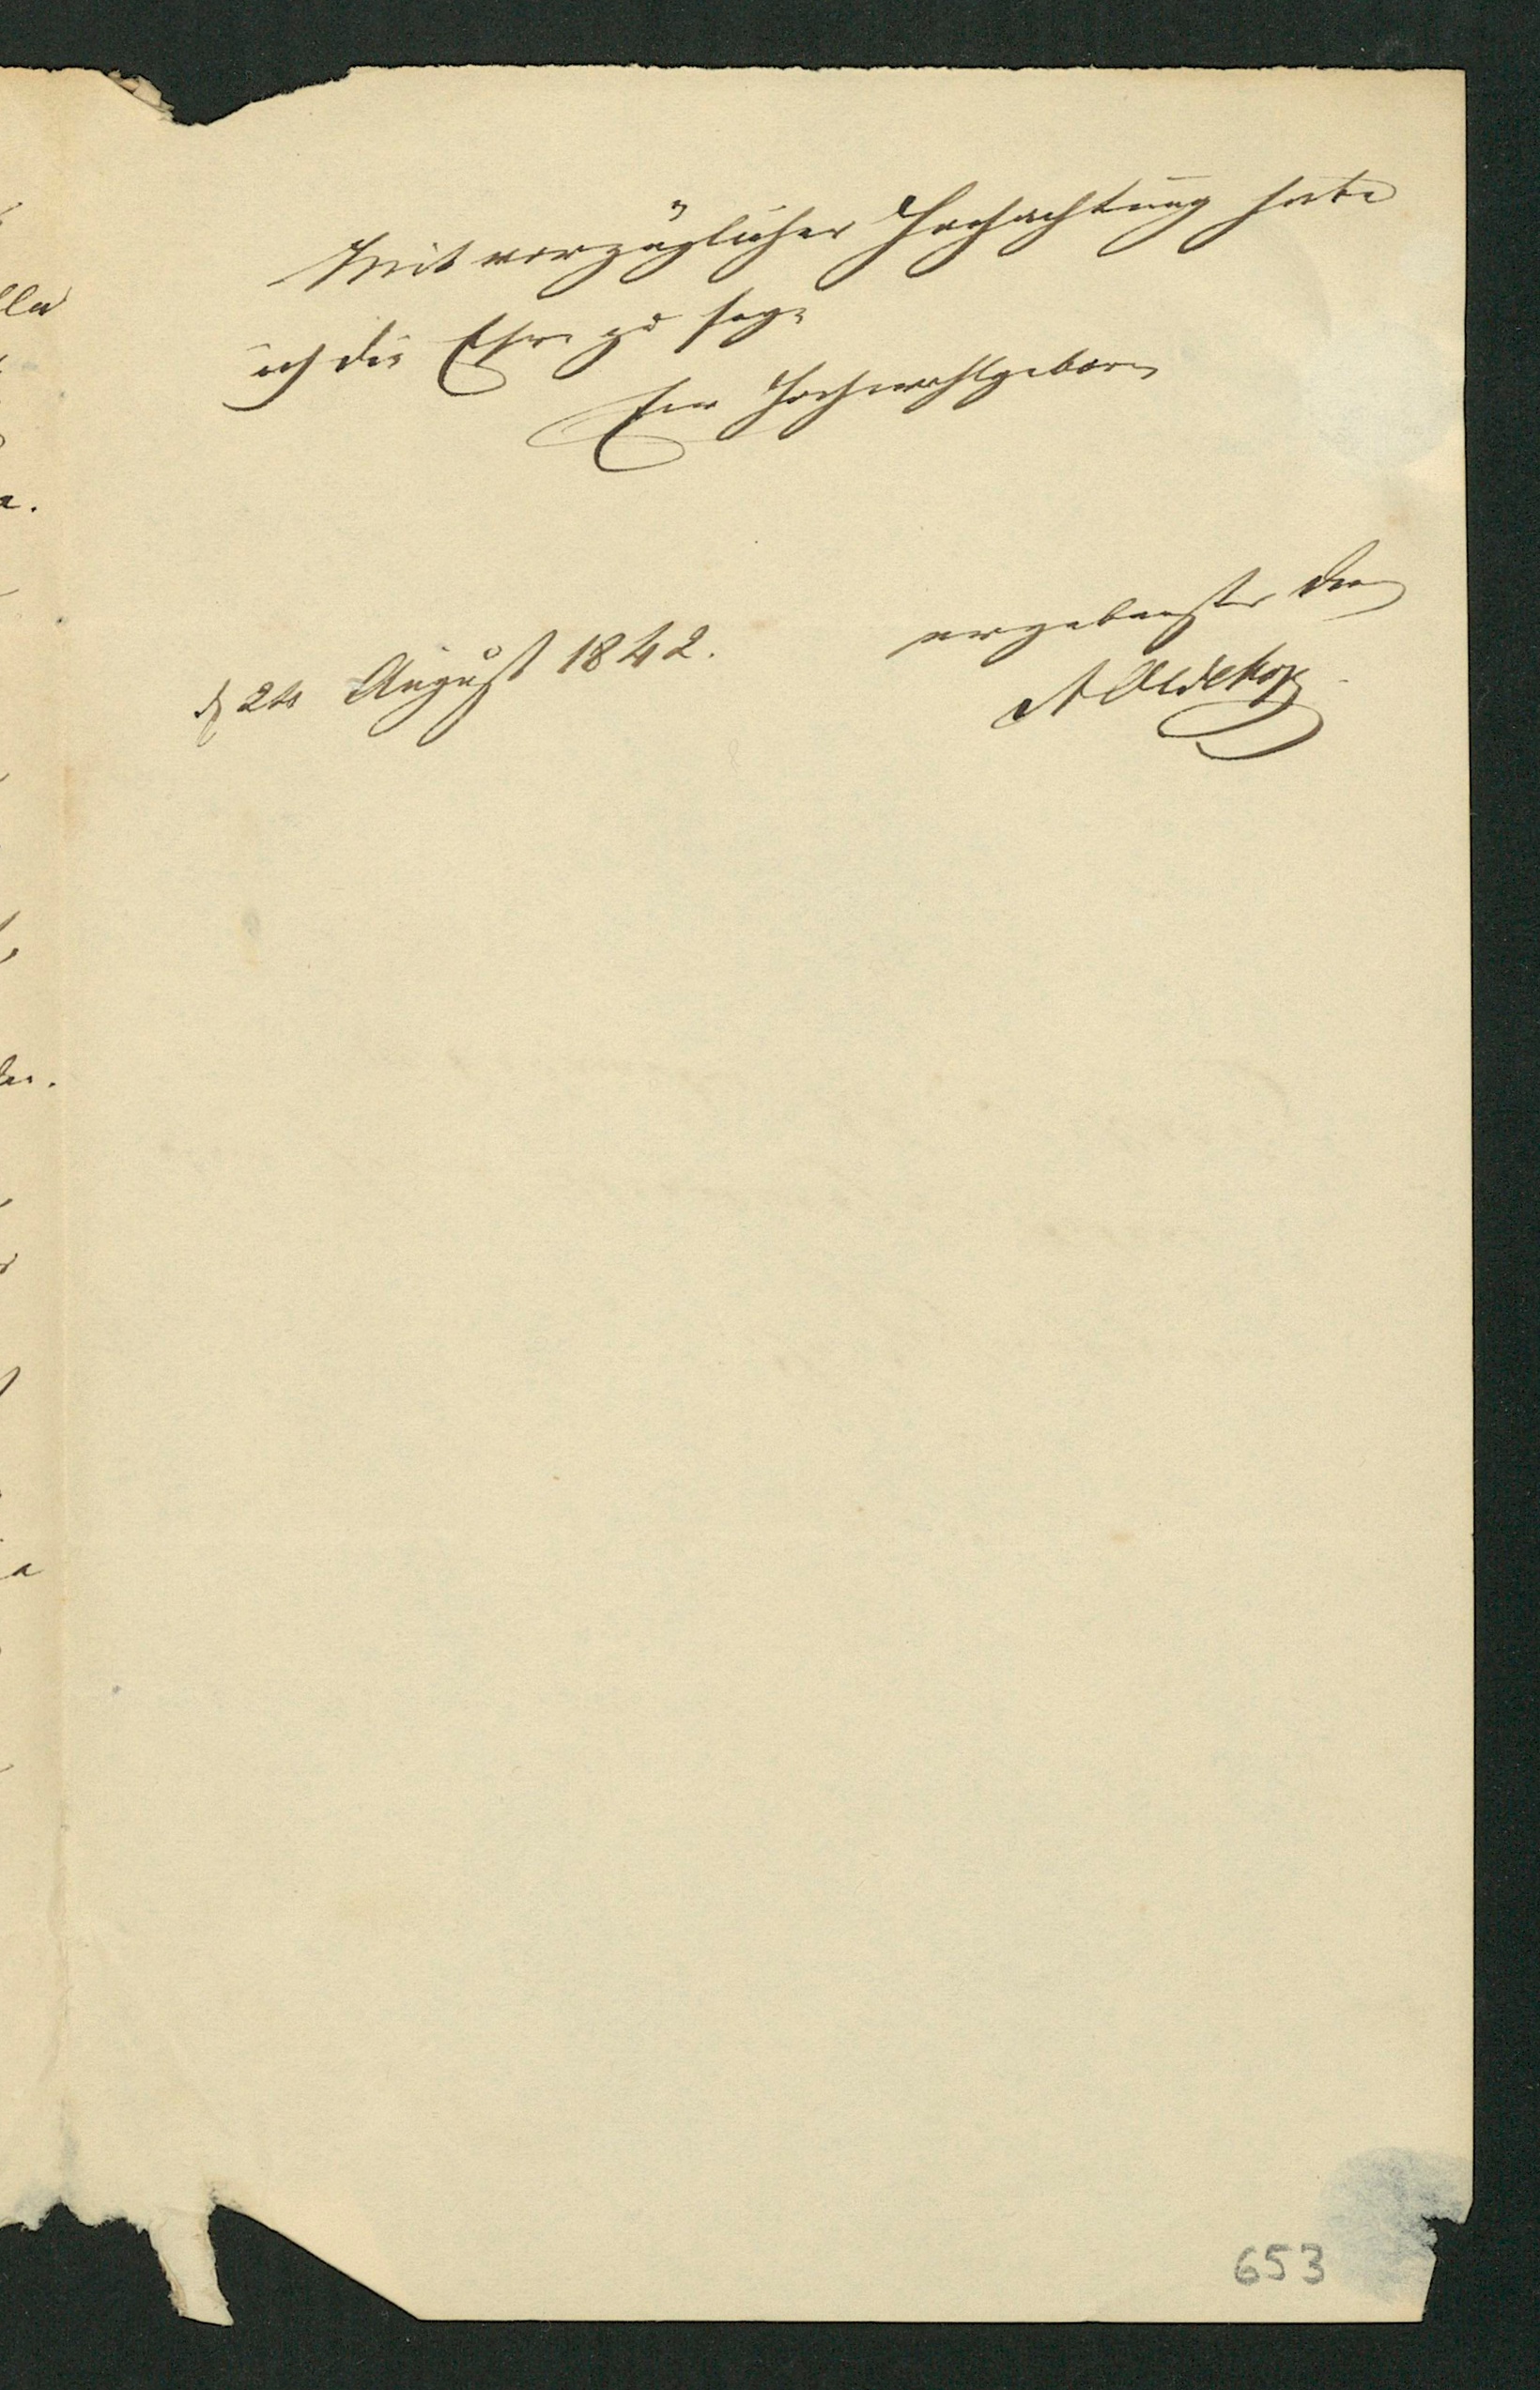 Mit vorzüglicher Hochachtung habe
ich die Ehre zu seyn
Ew Hochwohlgeboren
ergebenster
A Oldekop
d 24 August 1842.
653